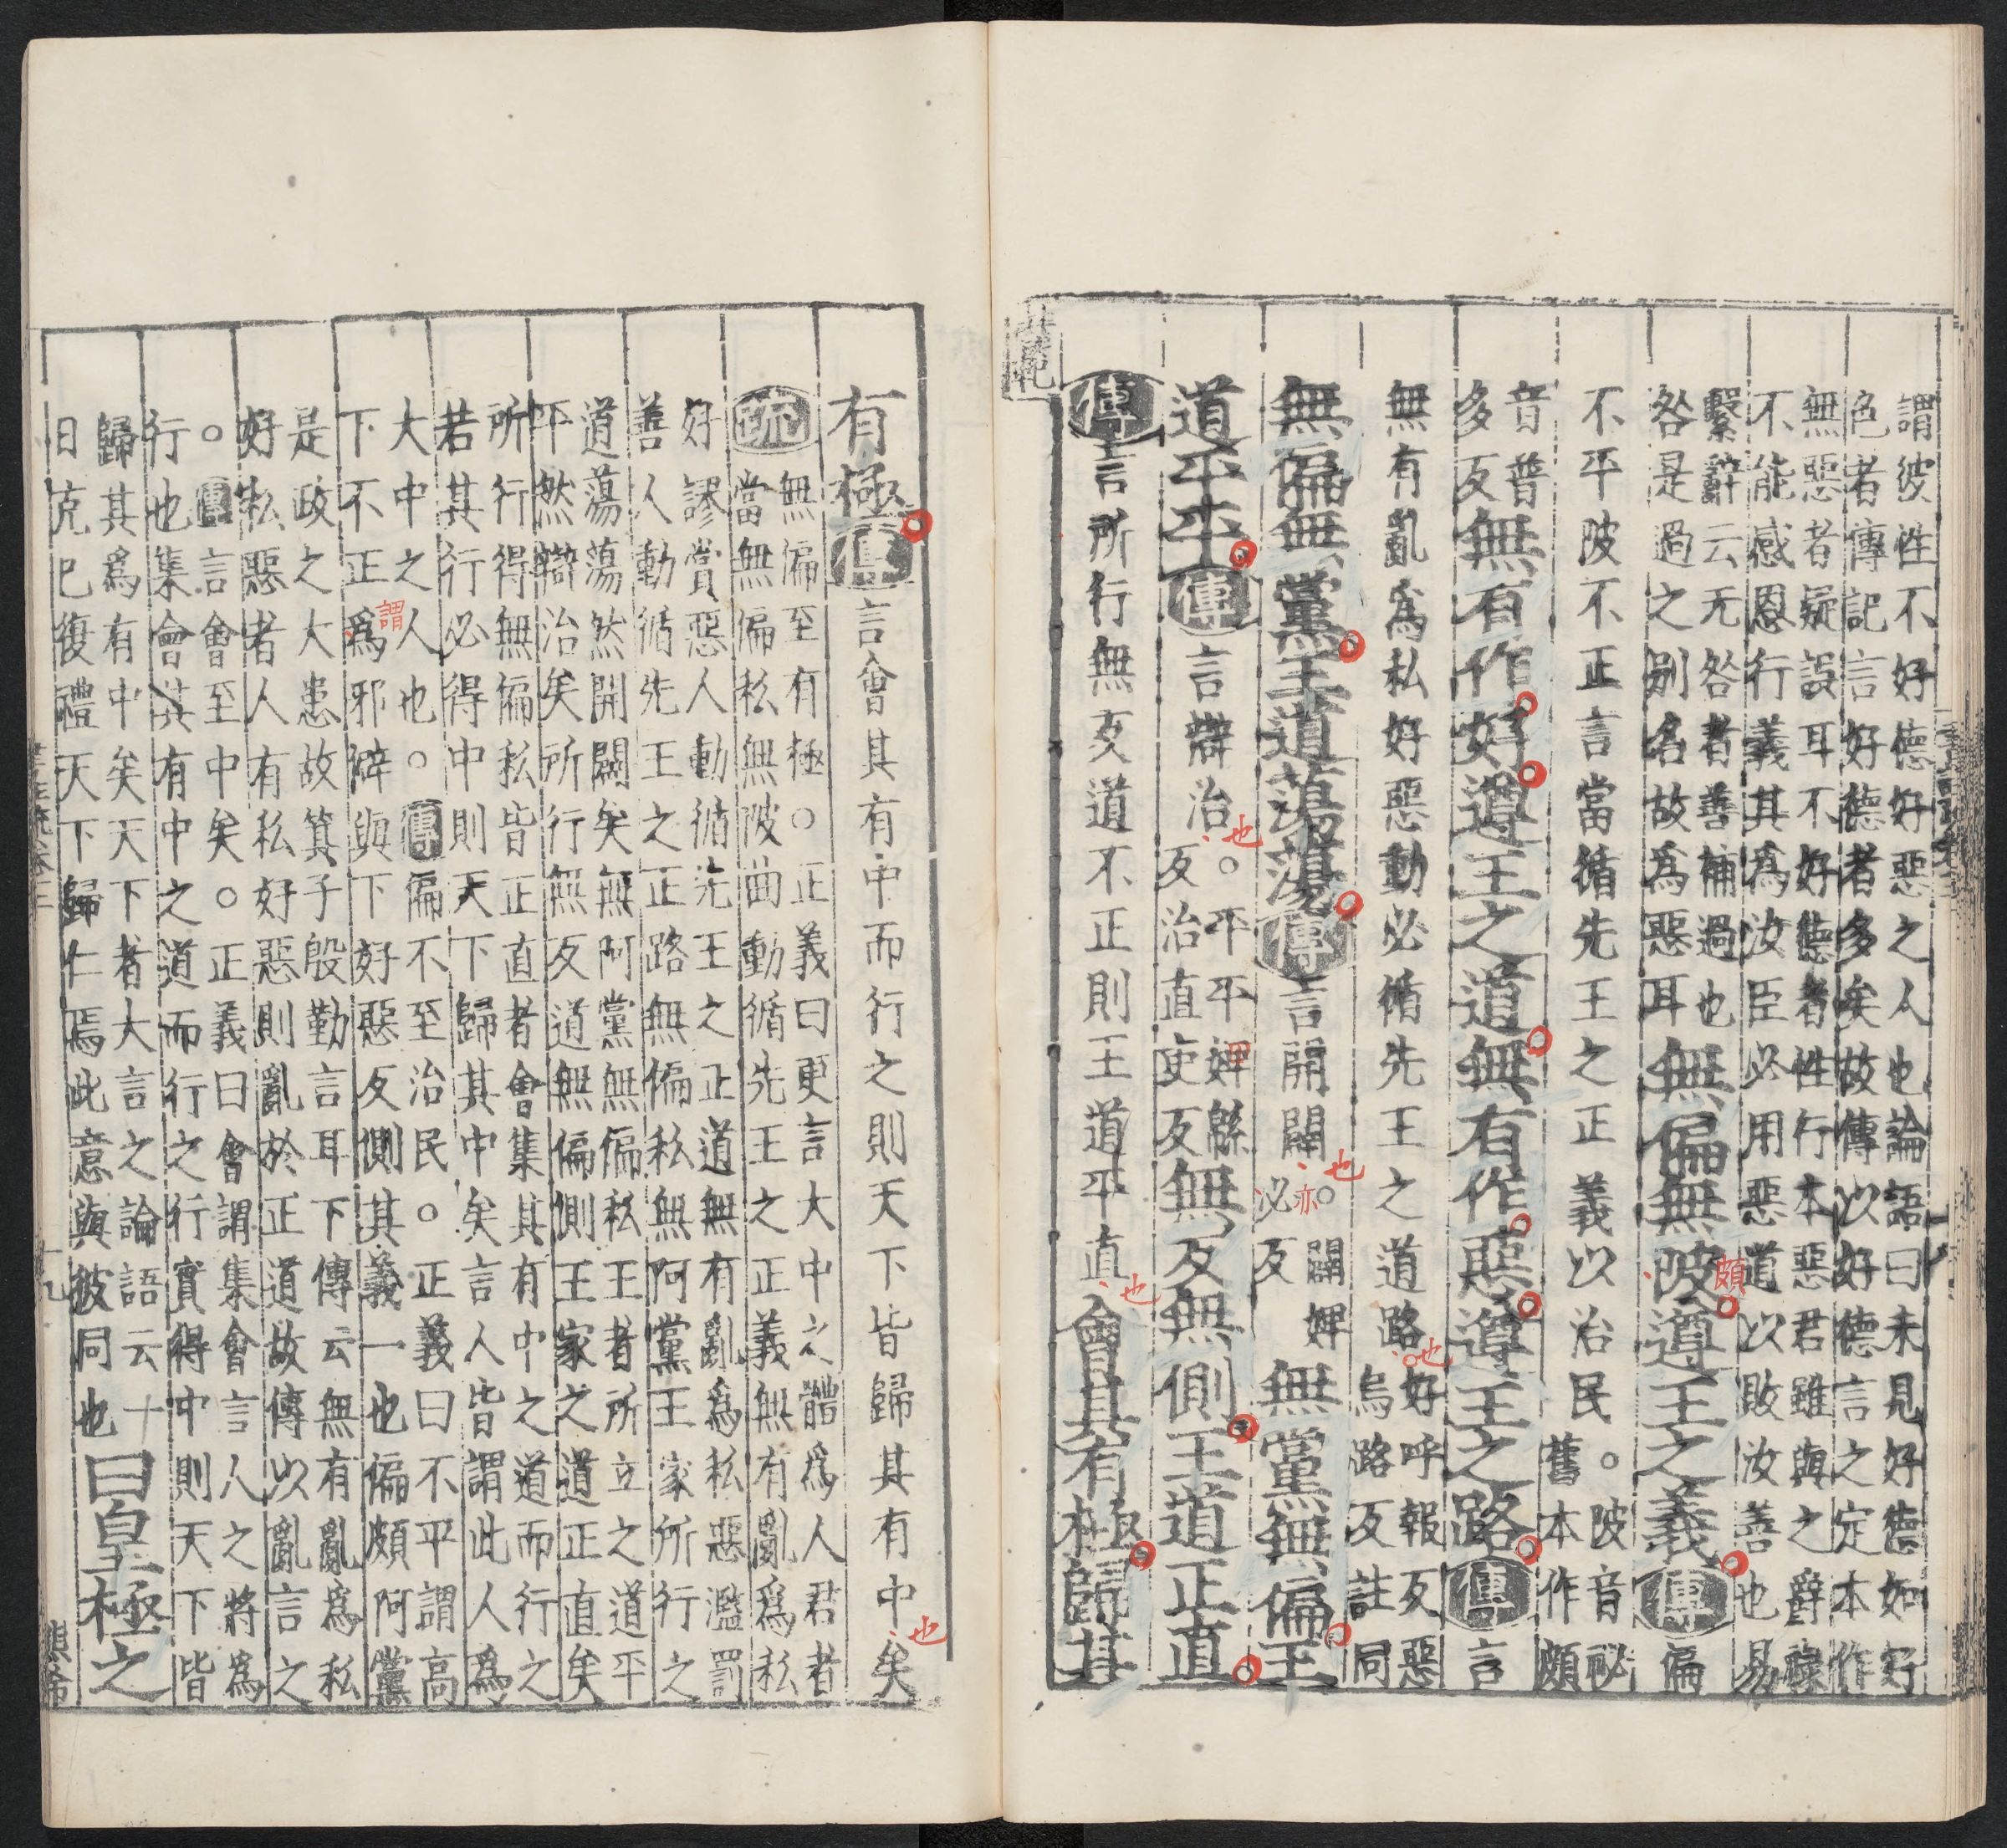 謂彼性不好德好惡之人也論語曰未見好德如好
色者傳記言好德者多矣故傳以好德言之定本作
無惡者疑誤耳不好德者性行本惡君雖與之爵祿
不能感恩行義其爲汝臣必用惡道以敗汝善也易
繫辭云无咎者善補過也
咎是過之别名故爲惡耳無偏無陂遵王之義傳偏
頗
不平陂不正言當循先王之正義以治民。陂音祕
舊本作頗
音普
多反無有作好遵王之道無有作惡遵王之路傳言
無有亂爲私好惡動必循先王之道路。好呼報反惡
烏路反註同
也
無偏無黨王道蕩蕩傳言開闢。闢婢
必亦反無黨無偏王
也
道平平傳言辯治。平平婢緜
反治直吏反無反無側王道正直
也
傳言所行無反道不正則王道平直會其有極歸其
也
洪範
有極傳言會其有中而行之則天下皆歸其有中矣
也
疏無偏至有極。正義曰更言大中之體爲人君者
當無偏私無陂曲動循先王之正義無有亂爲私
好謬賞惡人動循先王之正道無有亂爲私惡濫罰
善人動循先王之正路無偏私無阿黨王家所行之
道蕩蕩然開闢矣無阿黨無偏私王者所立之道平
平然辯治矣所行無反道無偏側王家之道正直矣
所行得無偏私皆正直者會集其有中之道而行之
若其行必得中則天下歸其中矣言人皆謂此人爲
大中之人也。傳偏不至治民。正義曰不平謂高
下不正爲邪僻與下好惡反側其義一也偏頗阿黨
謂
是政之大患故箕子殷勤言耳下傳云無有亂爲私
好私惡者人有私好惡則亂於正道故傳以亂言之
。傳言會至中矣。正義曰會謂集會言人之將爲
行也集會其有中之道而行之行實得中則天下皆
歸其爲有中矣天下者大言之論語云一
日克己復禮天下歸仁焉此意與彼同也曰皇極之